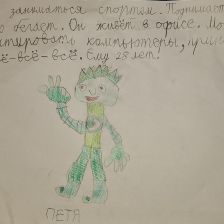 заниматься спортом. Понимает
о бегает. Он живёт в офисе. Мо
тировать компьютеры, прин
ё-всё-всё. Ему 28 лет.
ПЕТЯ